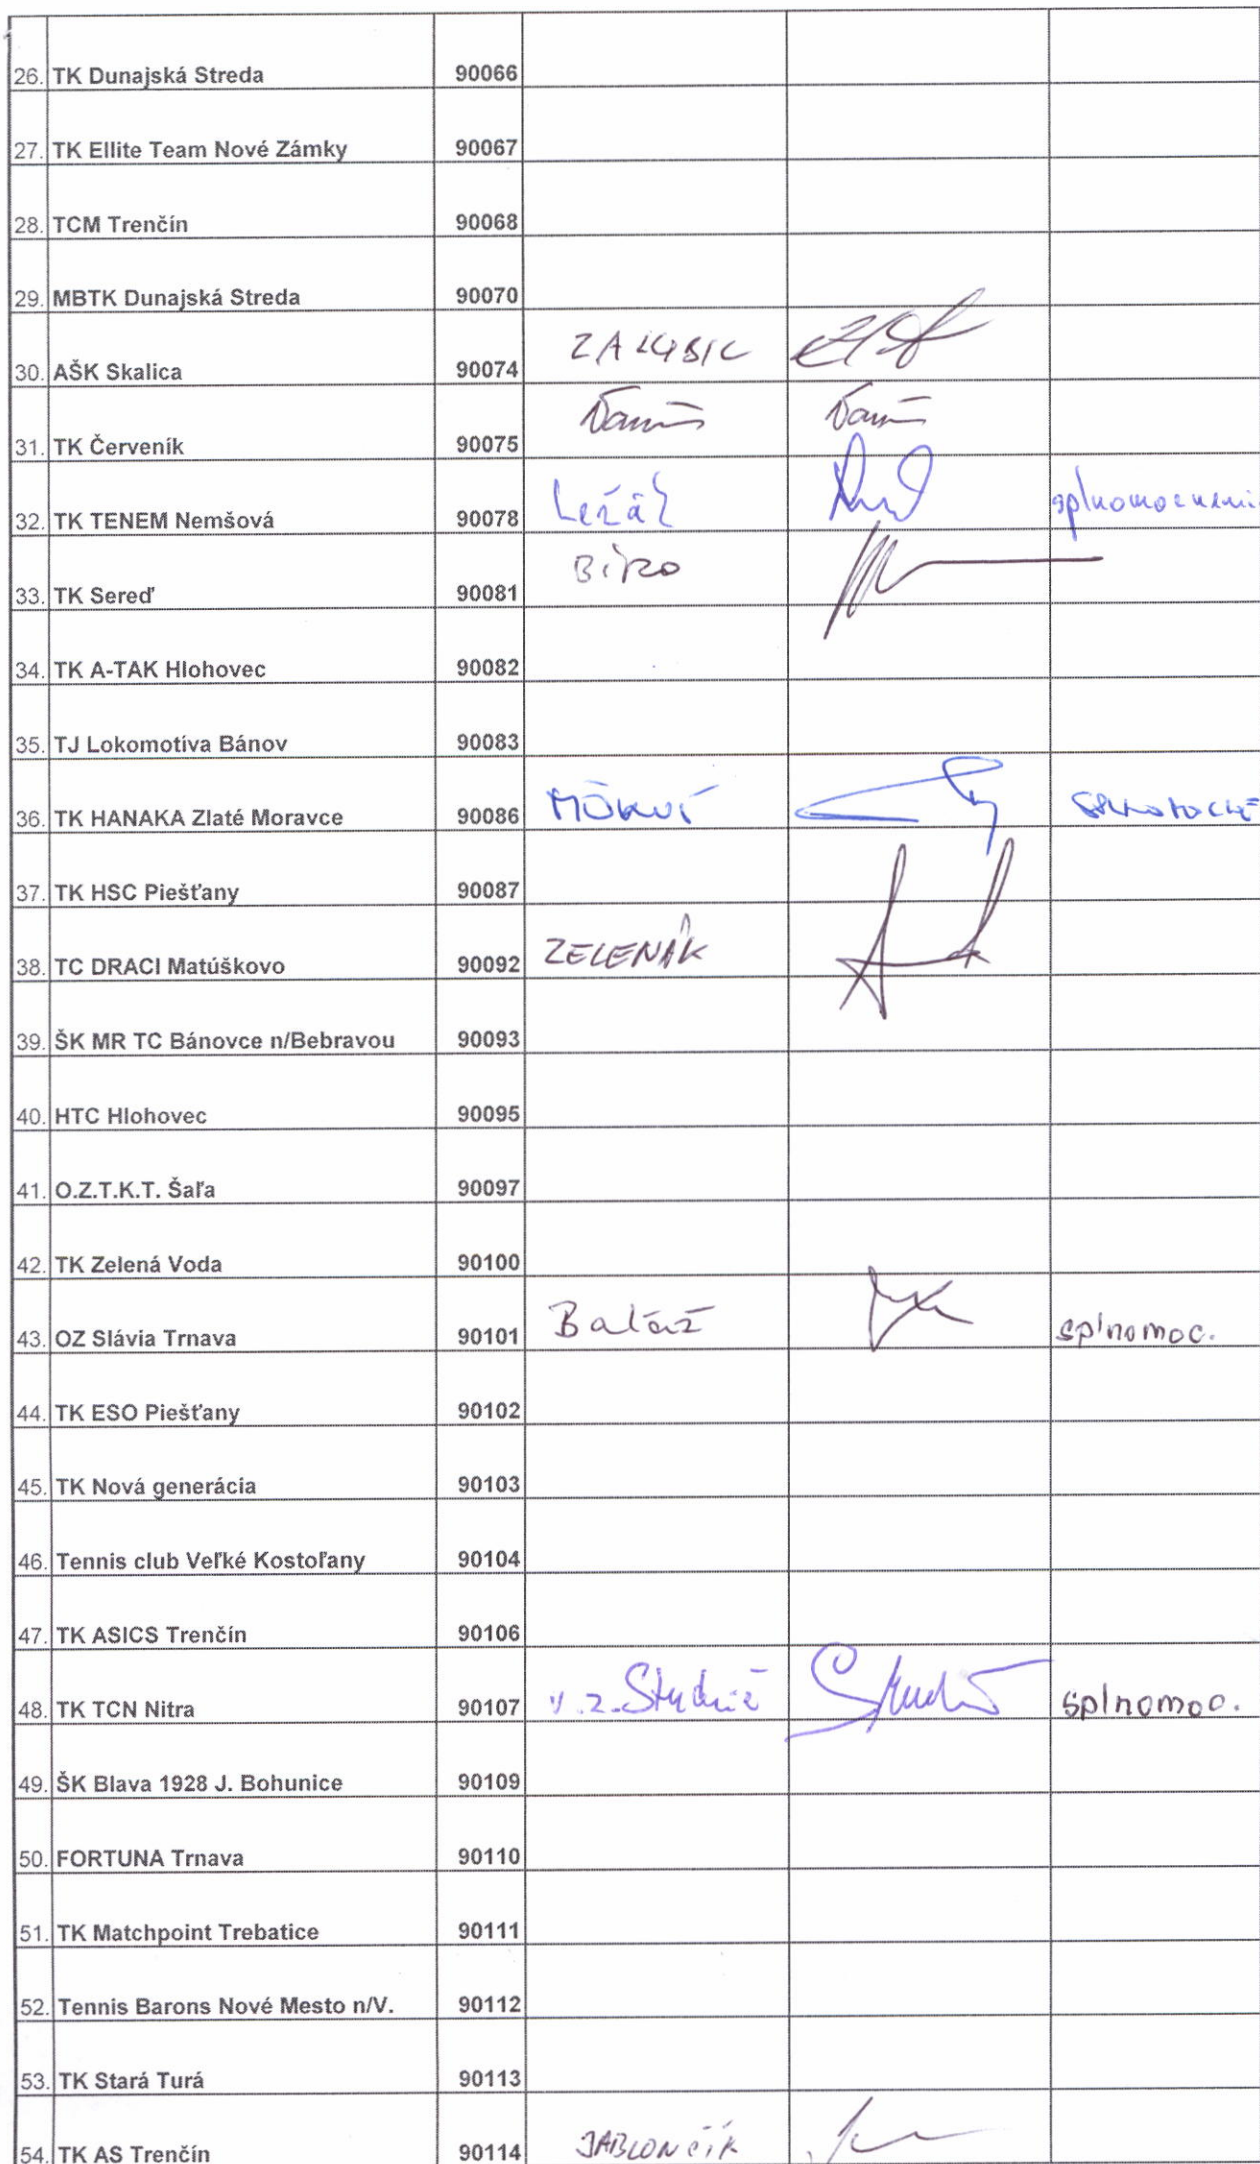 26. TK Dunajská Streda 90066
27. TK Ellite Team Nové Zámky 90067
28. TCM Trenčín 90068
29. MBTK Dunajská Streda 90070
30. AŠK Skalica 90074
31. TK Červeník 90075
32. TK TENEM Nemšová 90078 Ležák
33. TK Sereď 90081 Bíro
34. TK A-TAK Hlohovec 90082
35. TJ Lokomotíva Bánov 90083
36. TK HANAKA Zlaté Moravce 90086
37. TK HSC Piešťany 90087
38. TC DRACI Matúškovo 90092 ZELENÁK
39. ŠK MR TC Bánovce n/Bebravou 90093
40. HTC Hlohovec 90095
41. O.Z.T.K.T. Šaľa 90097
42. TK Zelená Voda 90100
43. OZ Slávia Trnava 90101 Baláž splnomoc.
44. TK ESO Piešťany 90102
45. TK Nová generácia 90103
46. Tennis club Veľké Kostoľany 90104
47. TK ASICS Trenčín 90106
48. TK TCN Nitra 90107 v.z. splnomoc.
49. ŠK Blava 1928 J. Bohunice 90109
50. FORTUNA Trnava 90110
51. TK Matchpoint Trebatice 90111
52. Tennis Barons Nové Mesto n/V. 90112
53. TK Stará Turá 90113
54. TK AS Trenčín 90114 JABLONČÍK